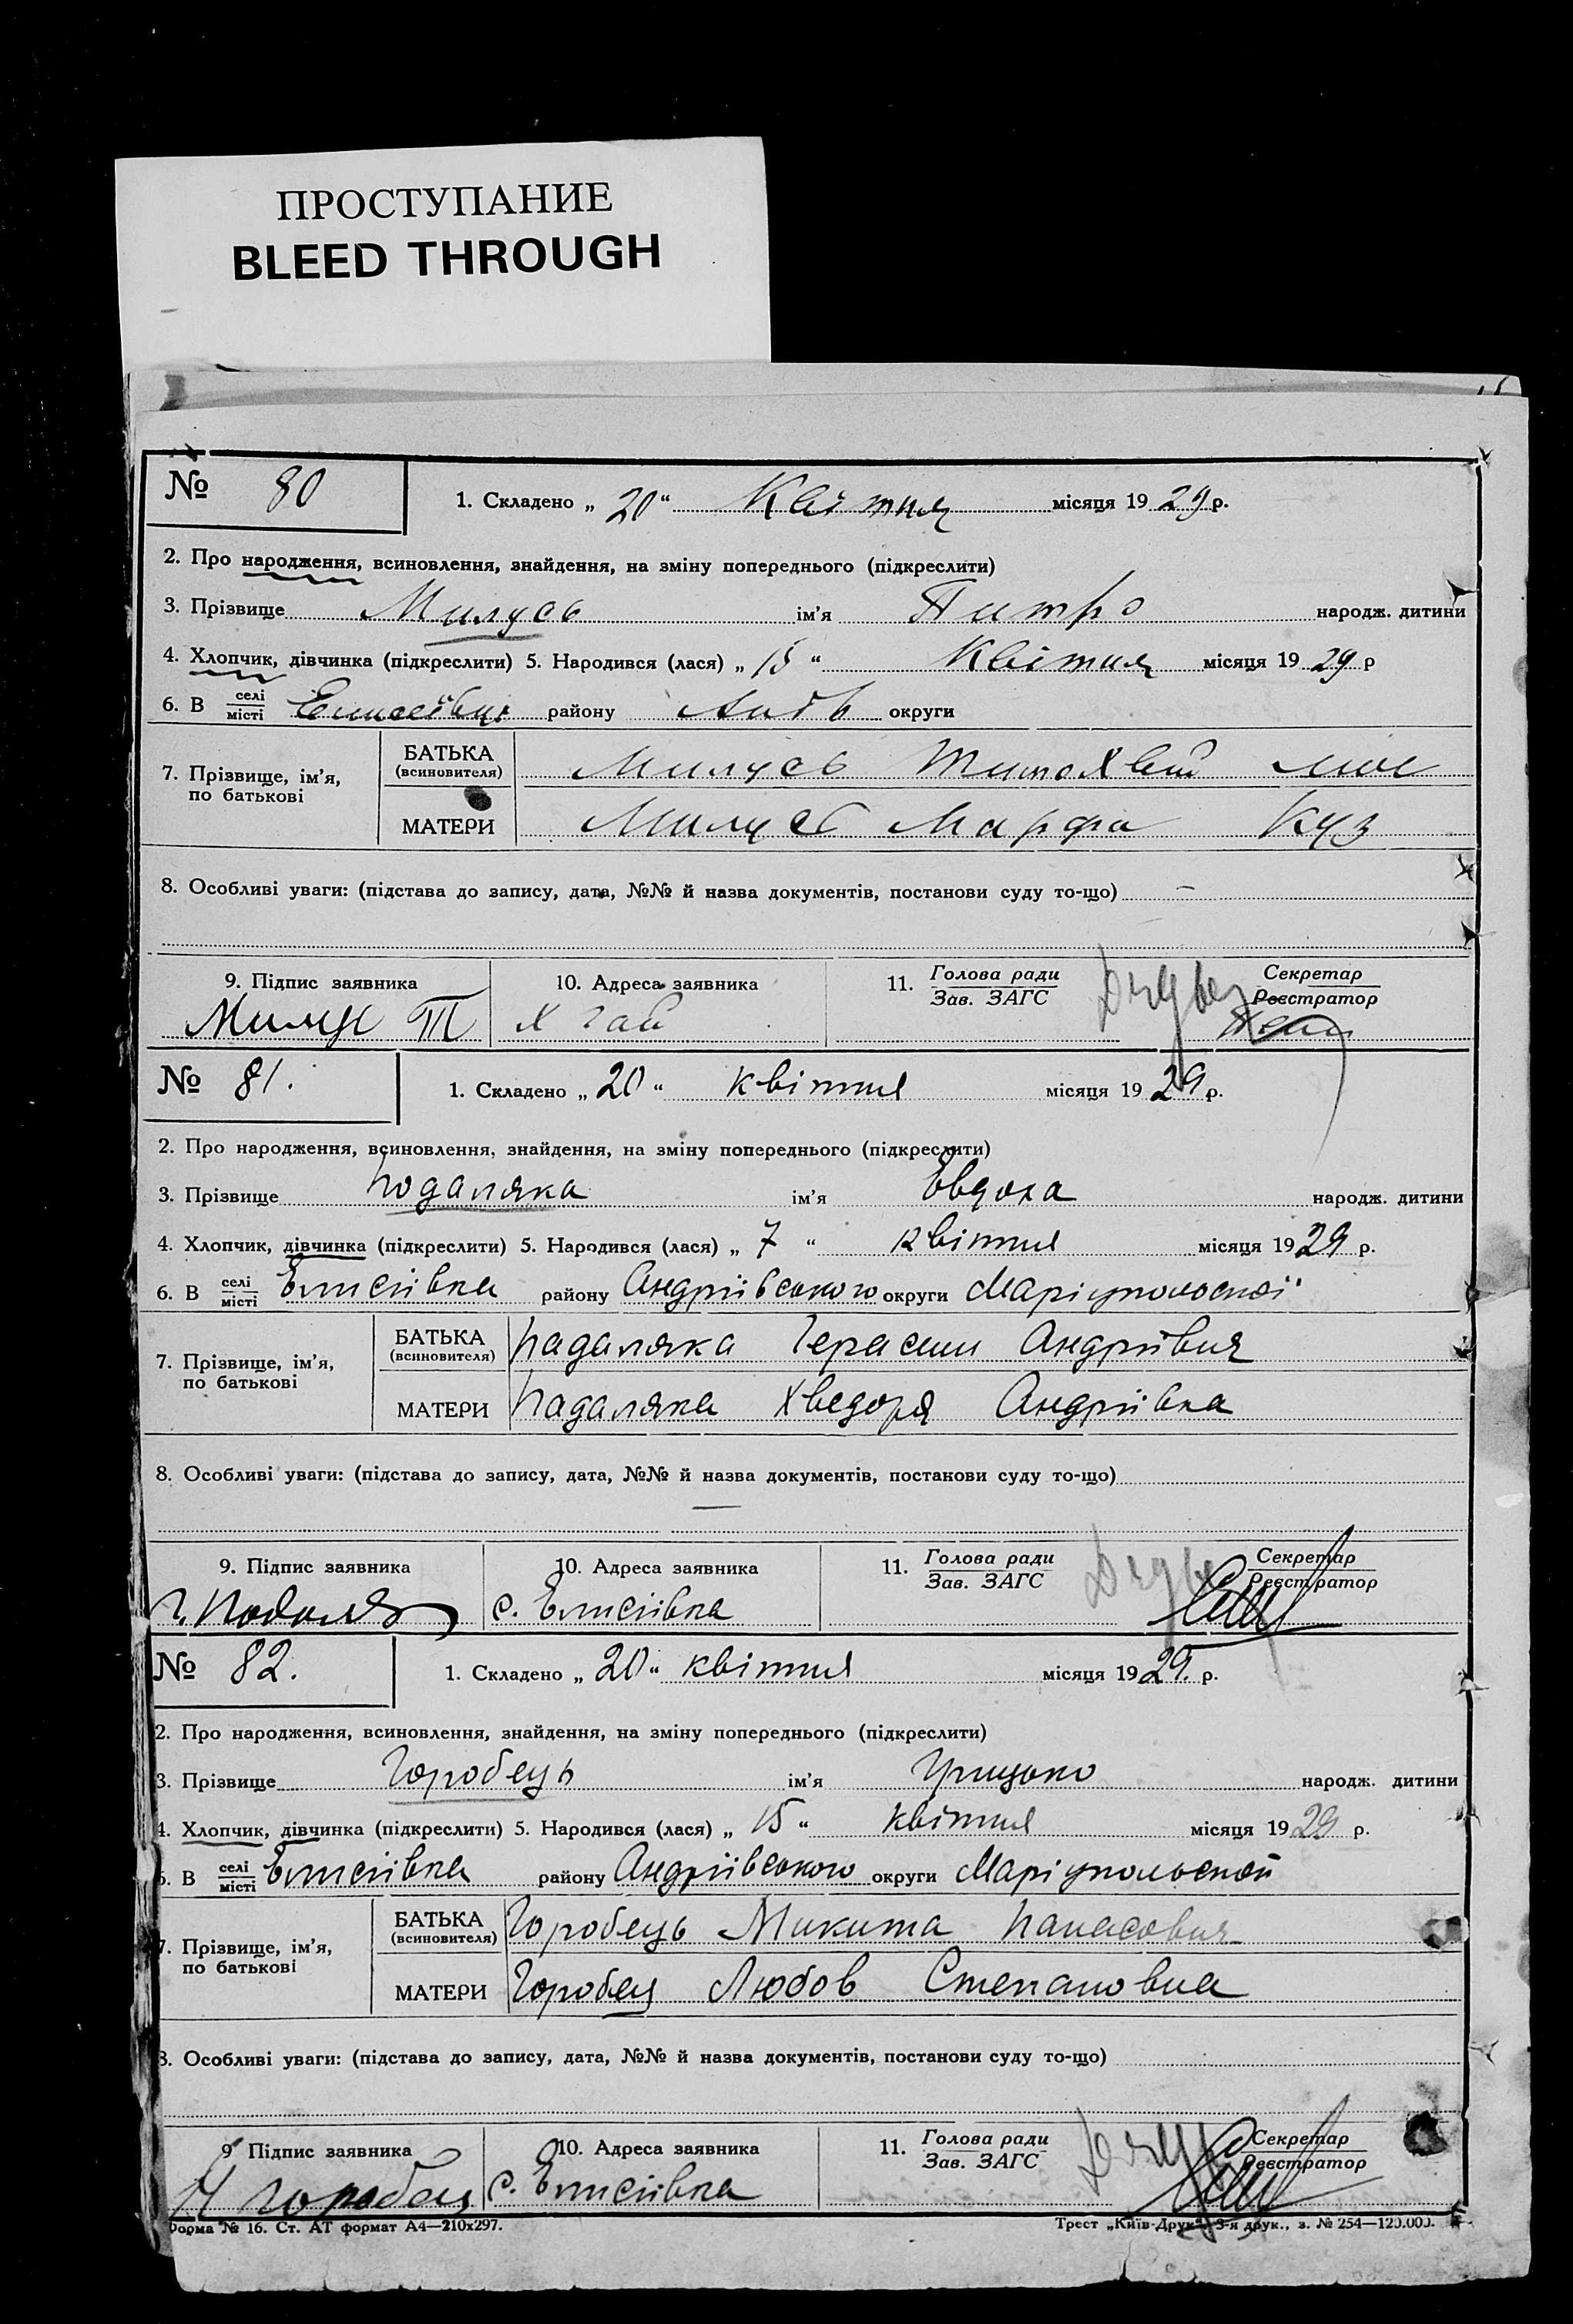 ПРОСТУПАНИЕ
BLEED THROUGH
№ 80
1. Складено „ 20 “ Квітня місяця 19 29 р.
2. Про народження, всиновлення, знайдення, на зміну попереднього (підкреслити)
3. Прізвище Милусь ім’я Питро народж. дитини
4. Хлопчик, дівчинка (підкреслити) 5. Народився (лася) „ 15 “ Квітня місяця 19 29 р
6. В селі місті району округи
7. Прізвище, ім’я, по батькові
БАТЬКА (всиновителя) Милусь Тимохвій
МАТЕРИ Милусь Марфа Куз
8. Особливі уваги: (підстава до запису, дата, №№ й назва документів, постанови суду то-що) —
9. Підпис заявника 10. Адреса заявника 11. Голова ради Зав. ЗАГС Секретар Реєстратор
Милус Т Х Гай
№ 81.
1. Складено „ 20 “ квітня місяця 19 29 р.
2. Про народження, всиновлення, знайдення, на зміну попереднього (підкреслити)
3. Прізвище Подаляка ім’я Овдоха народж. дитини
4. Хлопчик, дівчинка (підкреслити) 5. Народився (лася) „ 7 “ квітня місяця 19 29 р.
6. В селі місті Елисіївка району Андріївського округи Маріупольської
7. Прізвище, ім’я, по батькові
БАТЬКА (всиновителя) Падаляка Герасим Андрієвич
МАТЕРИ Падаляка Хведоря Андріївка
8. Особливі уваги: (підстава до запису, дата, №№ й назва документів, постанови суду то-що)
—
9. Підпис заявника 10. Адреса заявника 11. Голова ради Зав. ЗАГС Секретар Реєстратор
с. Елисіївка
№ 82.
1. Складено „ 20 “ квітня місяця 19 29. р.
2. Про народження, всиновлення, знайдення, на зміну попереднього (підкреслити)
3. Прізвище Горобець ім’я Грицько народж. дитини
4. Хлопчик, дівчинка (підкреслити) 5. Народився (лася) „ 15 “ квітня місяця 19 29 р.
6. В селі місті Елисіївка району Андріївського округи Маріупольської
7. Прізвище, ім’я, по батькові
БАТЬКА (всиновителя) Горобець Микита Панасович
МАТЕРИ Горобец Любов Степановна
8. Особливі уваги: (підстава до запису, дата, №№ й назва документів, постанови суду то-що)
9 Підпис заявника 10. Адреса заявника 11. Голова ради Зав. ЗАГС Секретар Реєстратор
Горобец с. Елисіївка
Форма № 16. Ст. АТ формат А4—210x297. Трест „Київ-Друк“, 3-я друк., з. № 254—120.000.